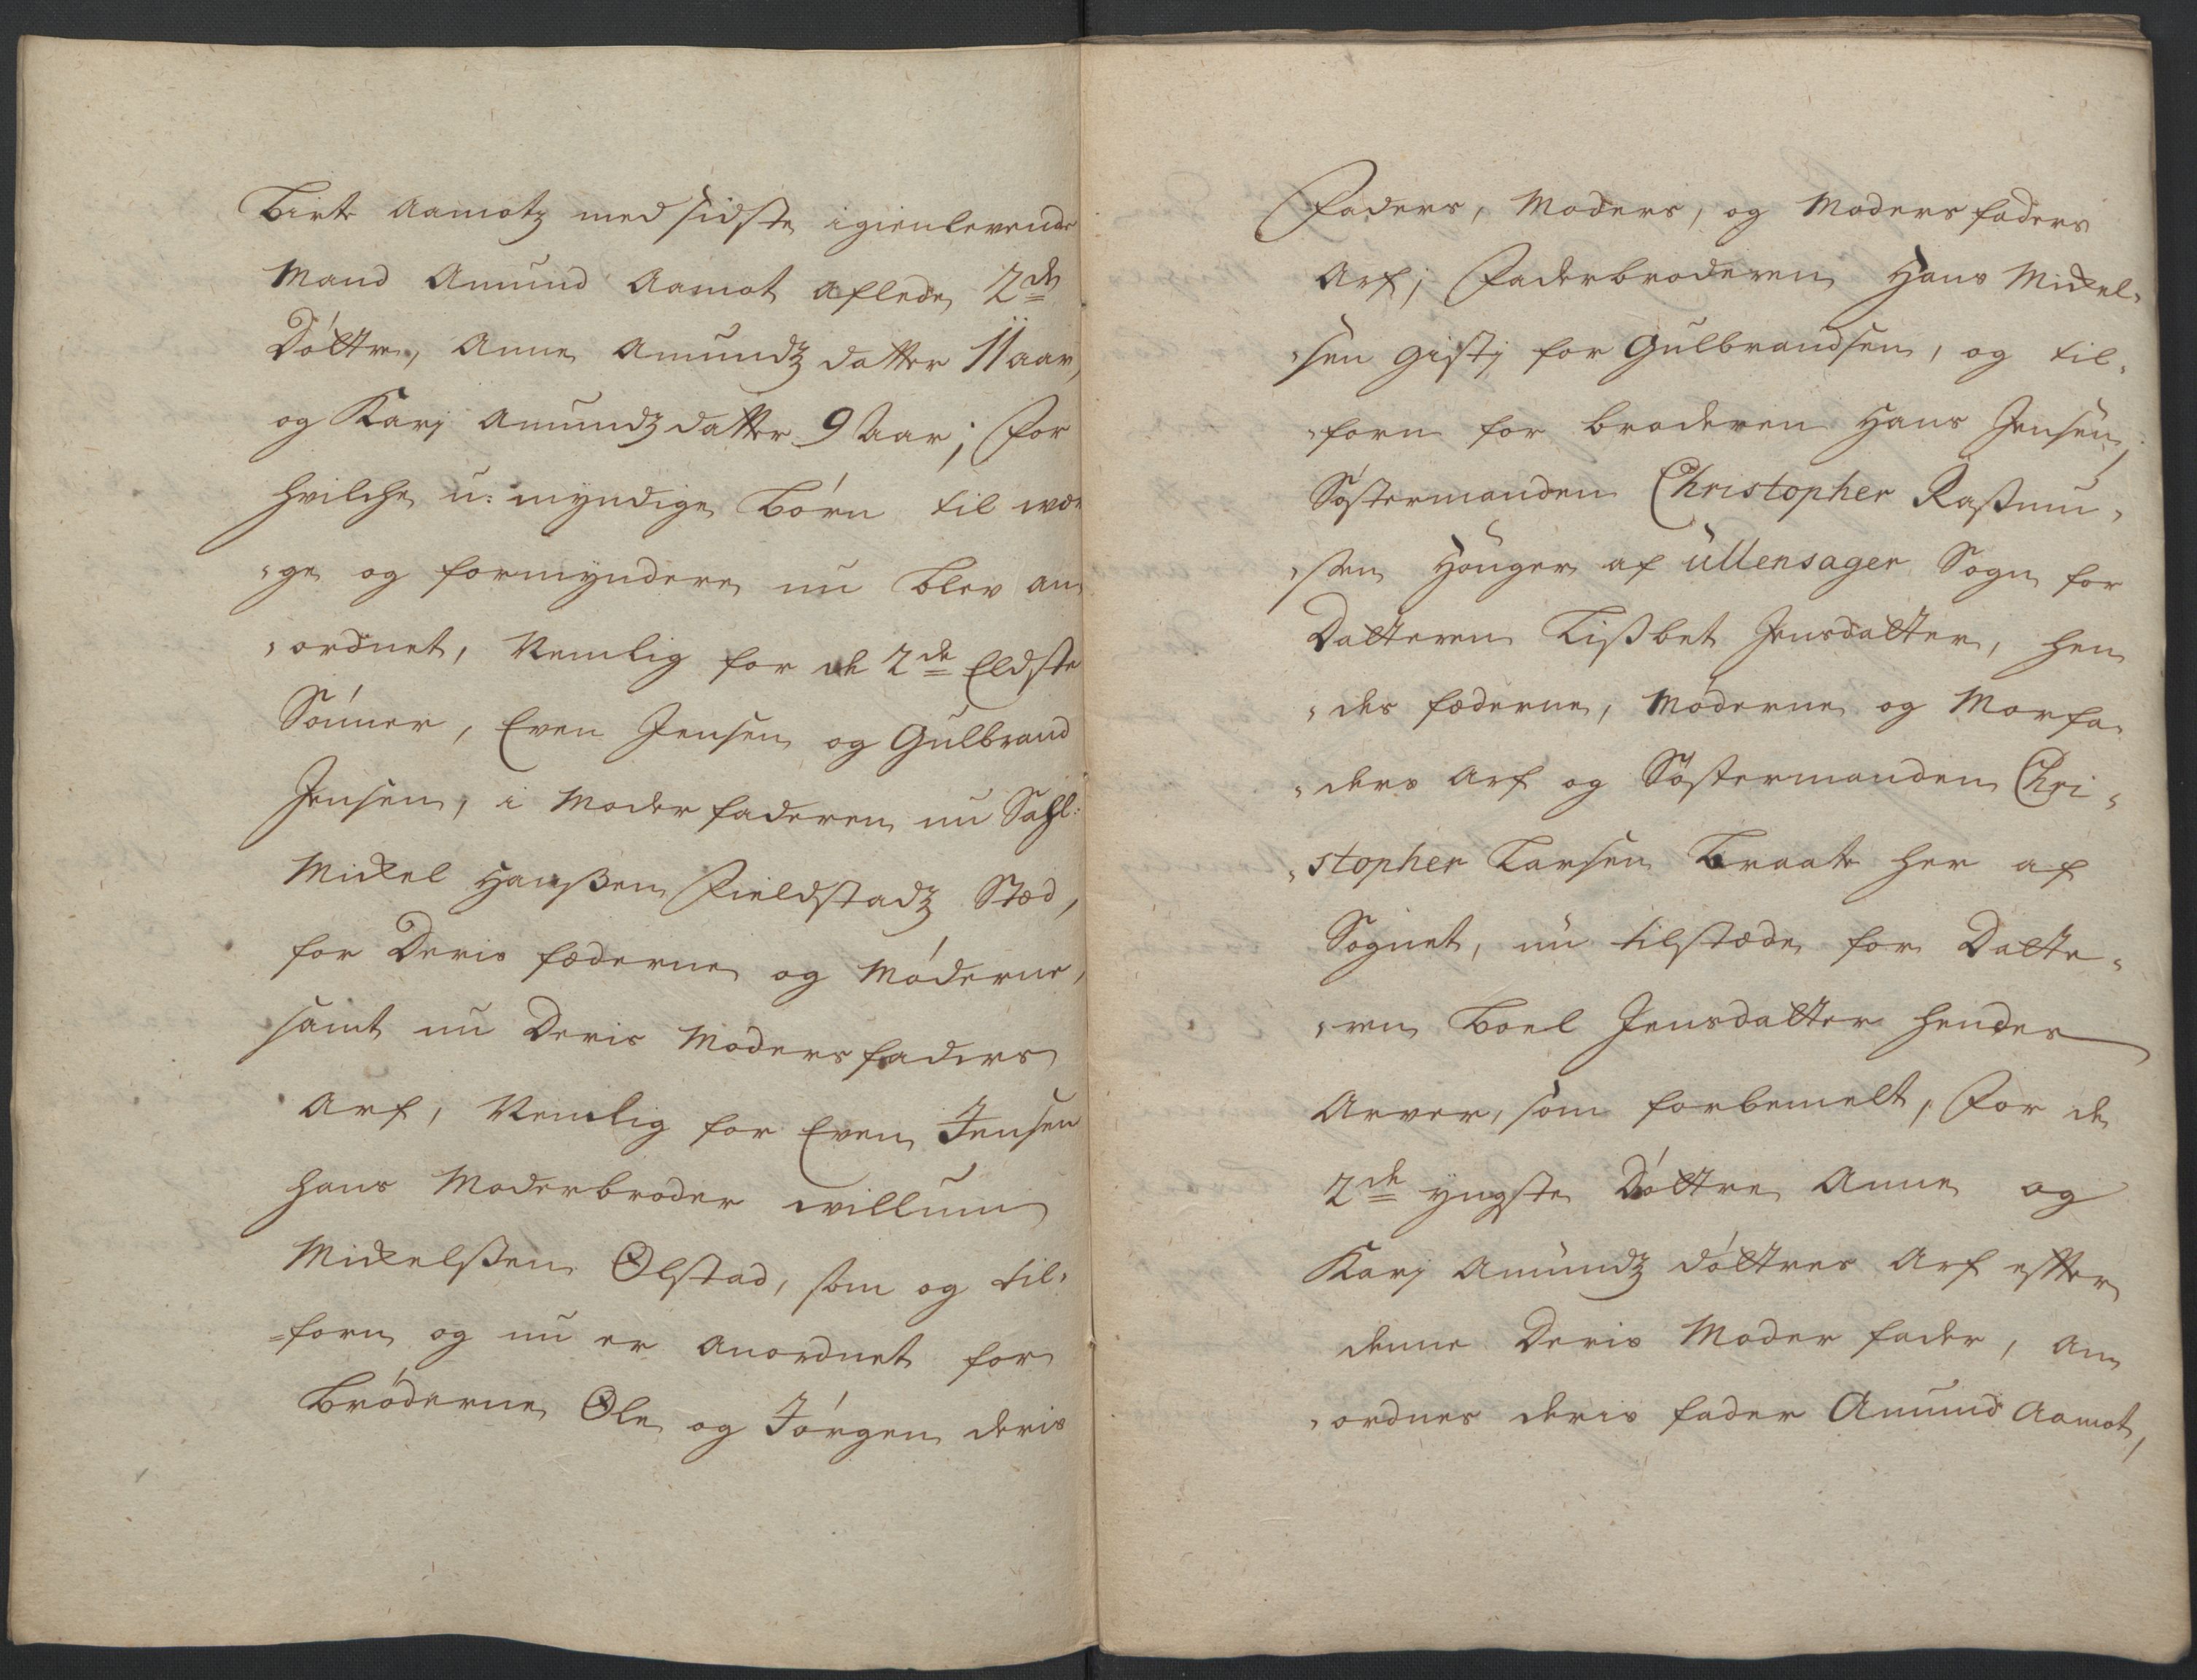 Birte Aamotz med sidste igienlevende
Mand Amund Aamot aflede 2de
Döttre, Anne Amundz datter 11 aar,
og Karj Amundz datter 9 Aar; For
hvilche u: myndige Börn til wær
,,ge og formyndere nu blev an
,,ordnet, Nemlig for de 2de Eldste
Sönner, Even Jensen og Gulbrand
Jensen, i Moderfaderen nu Sahl:
Mickel Hanssen Fieldstadz Sted,
for Deris fæderne og Möderne,
samt nu Deris Modersfaders
Arf, Nemlig for Even Jensen
hans Moderbroder willum
Mickelssen Olstad, som og til,,
=forn og nu er anordnet for
Bröderne Ole og Jörgen deris
Faders, Moders, og Modersfaders
Arf; Faderbroderen Hans Mickel,,
,,sen Gistj for Gulbrandsen, og til,,
,,forn for broderen Hans Jensen;
Söstermanden Christopher Rasmu,,
,,sen Hönger af Ullensager Sogn for
Datteren Lissbet Jensdatter, hen
,,des fæderne, Möderne og Morfa,,
,,ders Arf og Söstermanden Chri,,
,,stopher Larsen Braate her af
Sognet, nu tilstæde for Datte,,
,,ren Boel Jensdatter hendes
Arver, som forbemelt, For de
2de yngste Döttre Anne og
Karj Amundz döttres Arf efter
denne Deris Moder fader, an
,,ordnes deris fader Amund Aamot,